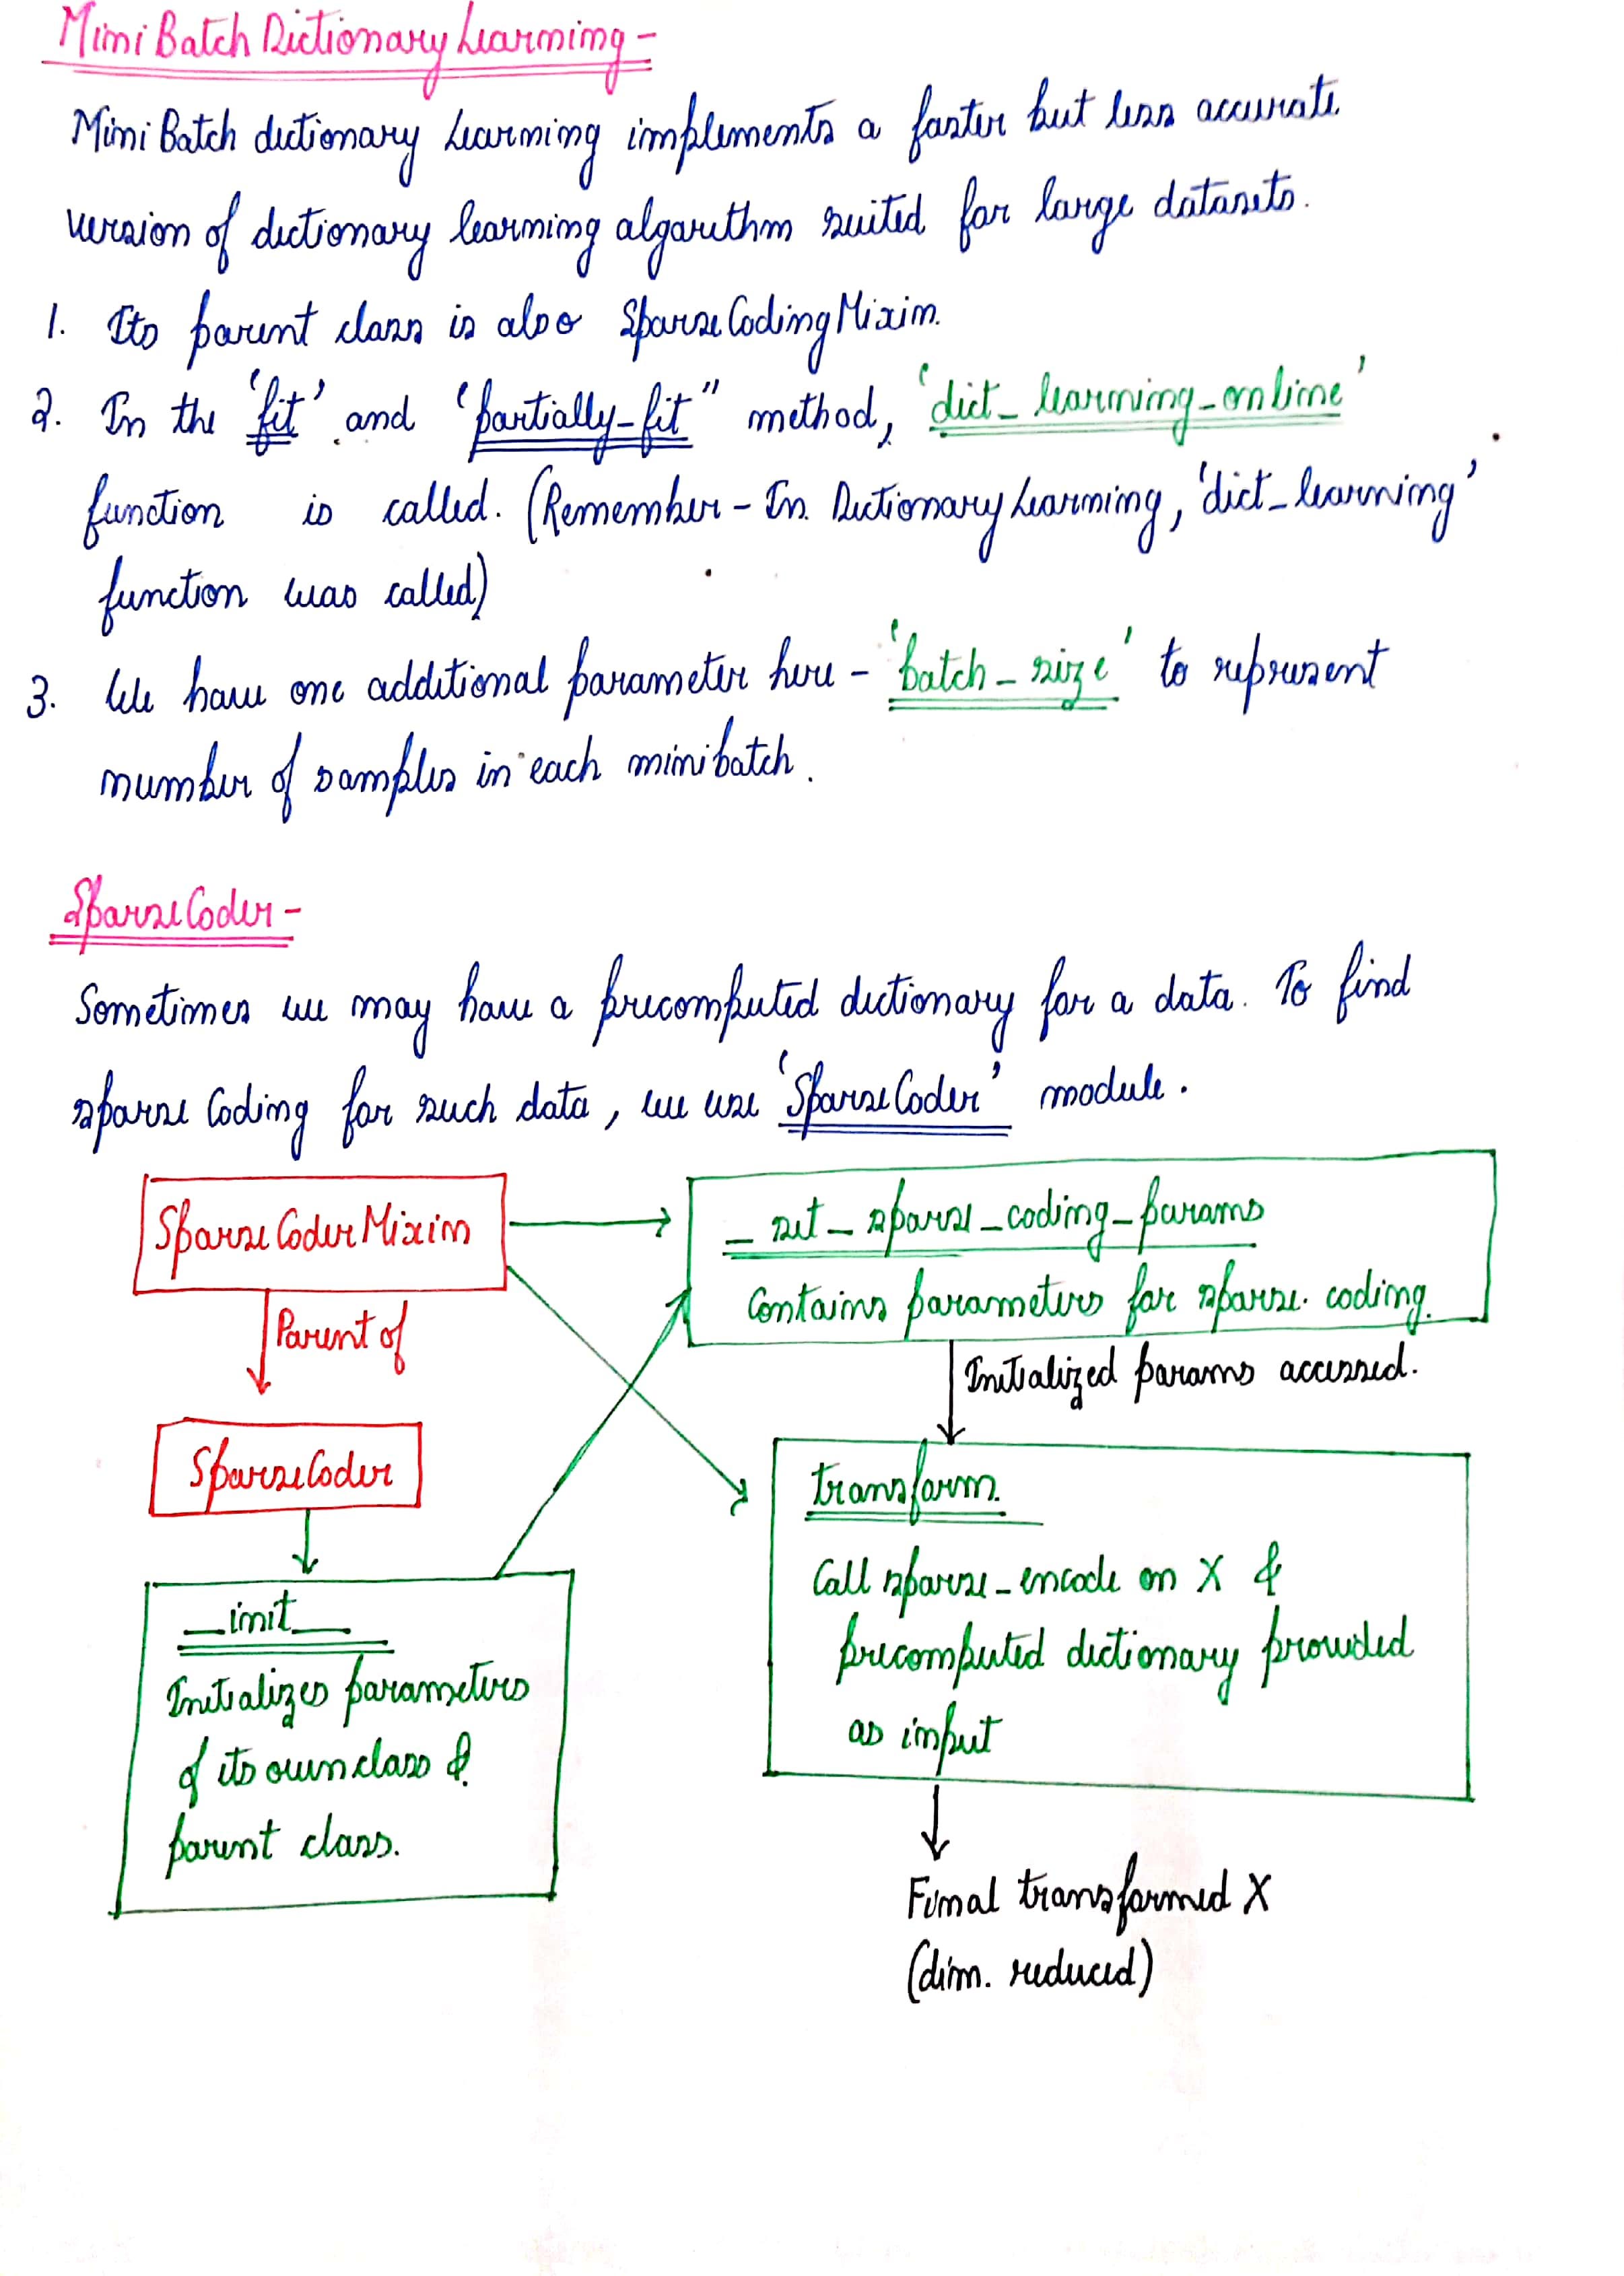 MiniBatch Dictionary Learning -
Mini Batch dictionary Learning implements a faster but less accurate
version of dictionary learning algorithm suited for large datasets.
1. Its parent class is also SparseCodingMixin.
2. In the 'fit' and 'partially_fit" method, 'dict_learning_online'
function is called. (Remember - In DictionaryLearning, 'dict_learning'
function was called)
3. We have one additional parameter here - 'batch_size' to represent
number of samples in each minibatch.
SparseCoder -
Sometimes we may have a precomputed dictionary for a data. To find
sparse Coding for such data, we use 'SparseCoder' module.
SparseCoderMixin
_set_sparse_coding_params
Contains parameters for sparse coding.
Parent of
Initialized params accessed.
SparseCoder
transform
Call sparse_encode on X &
precomputed dictionary provided
as input
__init__
Initializes parameters
of its own class &
parent class.
Final transformed X
(dim. reduced)